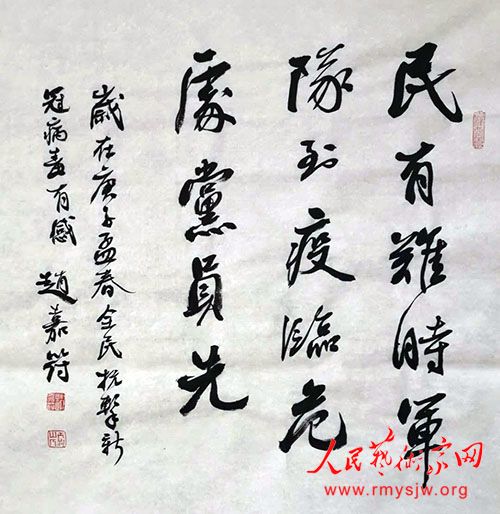 民有難時軍
隊到疫臨危
處黨員先
歲在庚子孟春全民抗擊新
冠病毒有感 趙嘉符
人民藝術家网
www.rmysjw.org